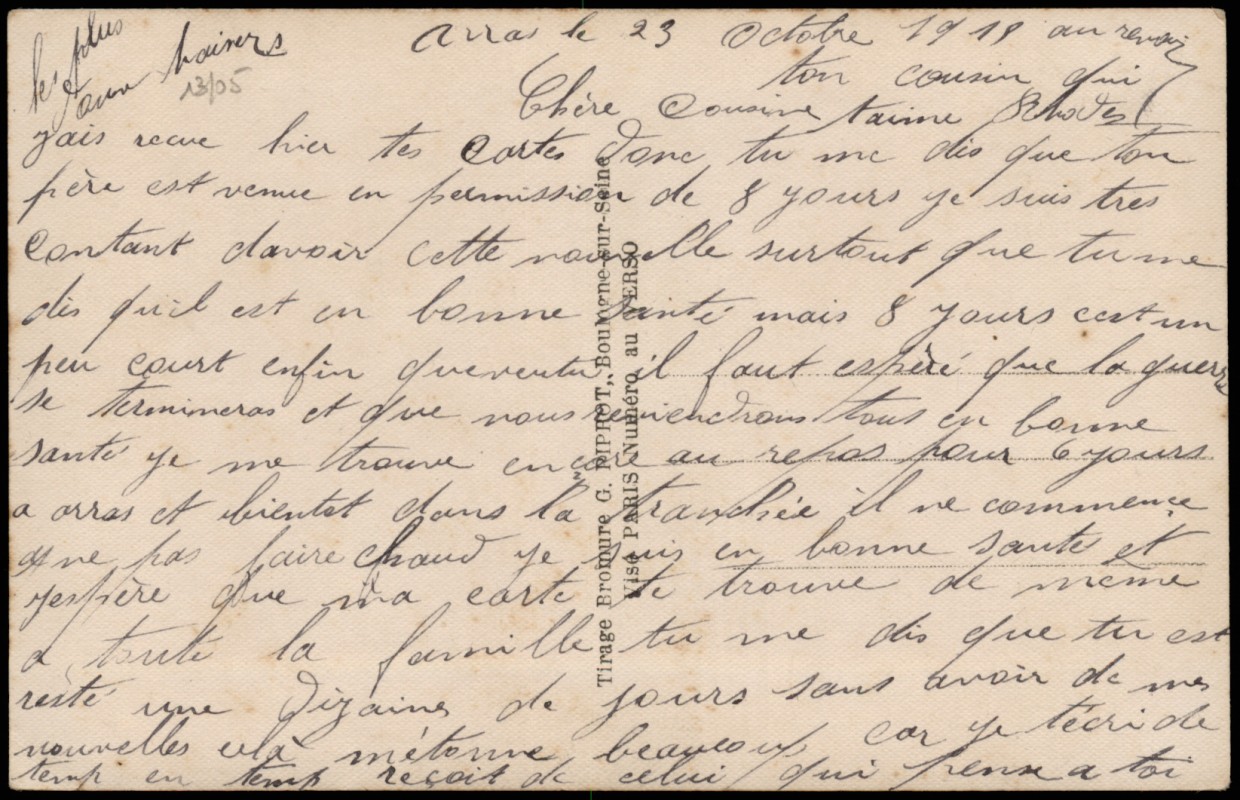 Arras le 23 Octobre 1918
Chère Cousine
jais recue hier tes Cartes donc tu me dis que ton
père est venue en permission de 8 yours ye suis tres
Contant davoir cette nouvelle surtout que tu me
dis quil est en bonne santé mais 8 yours cest un
peu court enfin il faut espéré que la guerre
se termineras et que nous reviendrons tous en bonne
santé ye me trouve encore au repos pour 6 yours
a arras et bientot dans la tranchée il ne commence
pas faire chaud ye suis en bonne santé et
yespère que ma carte te trouve de même
a toute la famille tu me dis que tu est
resté une dizaine de jours sans avoir de mes
nouvelles cela métonne beaucoup car ye técri de
temp en temp reçoit de celui qui pense a toi
les plus
doux baisers
au revoir
ton cousin qui
taime
13/05
Tirage Bromure G. PIPROT, Boulogne-sur-Seine
Visé PARIS Numéro au VERSO